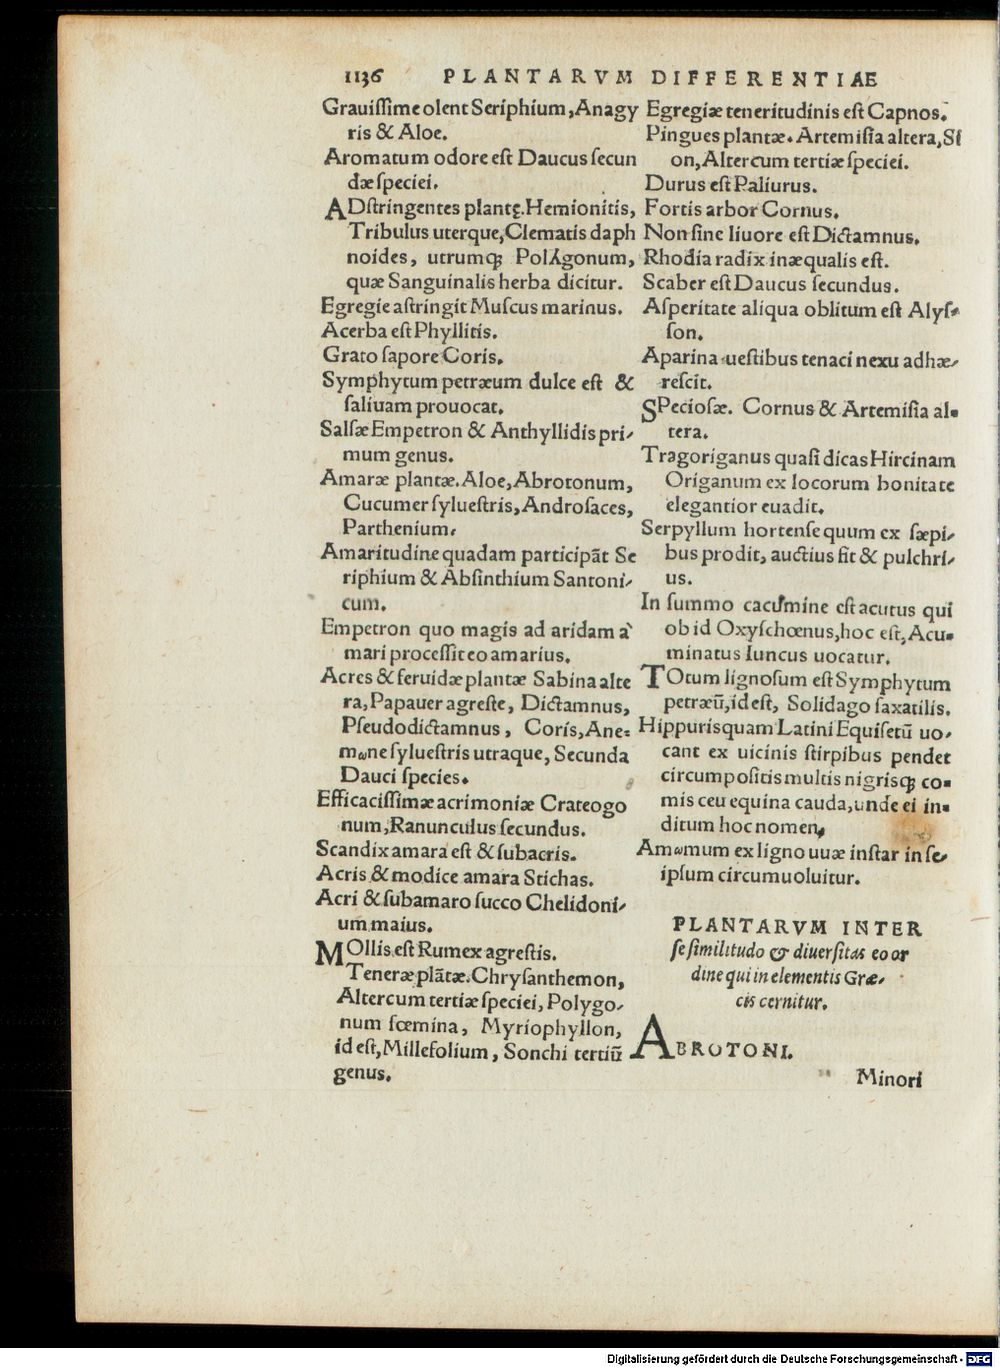 1136 PLANTARVM DIFFERENTIAE
Grauiſſime olent Seriphium, Anagy
ris & Aloe.
Aromatum odore eſt Daucus ſecun
dæ ſpeciei.
ADſtringentes plantę. Hemionitis,
Tribulus uterque, Clematis daph
noides, utrumq; Polygonum,
quæ Sanguinalis herba dicitur.
Egregie aſtringit Muſcus marinus.
Acerba eſt Phyllitis.
Grato ſapore Coris.
Symphytum petræum dulce eſt &
ſaliuam prouocat.
Salſæ Empetron & Anthyllidis pri-
mum genus.
Amaræ plantæ. Aloe, Abrotonum,
Cucumer ſylueſtris, Androſaces,
Parthenium.
Amaritudine quadam participãt Se
riphium & Abſinthium Santoni-
cum.
Empetron quo magis ad aridam à
mari proceſſit eo amarius.
Acres & feruidæ plantæ Sabina alte
ra, Papauer agreſte, Dictamnus,
Pſeudodictamnus, Coris, Ane-
mωne ſylueſtris utraque, Secunda
Dauci ſpecies.
Efficaciſſimæ acrimoniæ Crateogo
num, Ranunculus ſecundus.
Scandix amara eſt & ſubacris.
Acris & modice amara Stichas.
Acri & ſubamaro ſucco Chelidoni-
um maius.
MOllis eſt Rumex agreſtis.
Teneræ plãtæ. Chryſanthemon,
Altercum tertiæ ſpeciei, Polygo-
num fœmina, Myriophyllon,
id eſt, Millefolium, Sonchi tertiũ
genus.
Egregiæ teneritudinis eſt Capnos.
Pingues plantæ. Artemiſia altera, Si
on, Altercum tertiæ ſpeciei.
Durus eſt Paliurus.
Fortis arbor Cornus.
Non ſine liuore eſt Dictamnus.
Rhodia radix inæqualis eſt.
Scaber eſt Daucus ſecundus.
Aſperitate aliqua oblitum eſt Alyſ-
ſon.
Aparina ueſtibus tenaci nexu adhæ-
reſcit.
SPecioſæ. Cornus & Artemiſia al-
tera.
Tragoriganus quaſi dicas Hircinam
Origanum ex locorum bonitate
elegantior euadit.
Serpyllum hortenſe quum ex ſæpi-
bus prodit, auctius fit & pulchri-
us.
In ſummo cacumine eſt acutus qui
ob id Oxyſchœnus, hoc eſt, Acu-
minatus Iuncus uocatur.
TOtum lignoſum eſt Symphytum
petræũ, id eſt, Solidago ſaxatilis.
Hippuris quam Latini Equiſetũ uo-
cant ex uicinis ſtirpibus pendet
circumpoſitis multis nigrisq; co-
mis ceu equina cauda, unde ei in-
ditum hoc nomen,
Amωmum ex ligno uuæ inſtar in ſe-
ipſum circumuoluitur.
PLANTARVM INTER
ſe ſimilitudo & diuerſitas eo or
dine qui in elementis Græ-
cis cernitur.
ABROTONI.
Minori
Digitalisierung gefördert durch die Deutsche Forschungsgemeinschaft - DFG